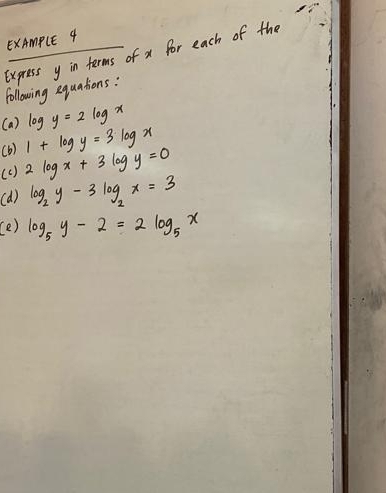 EXAMPLE 4
Express y in terms of x for each of the
following equations :
(a) log y = 2 log x
(b) 1 + log y = 3 log x
(c) 2 log x + 3 log y = 0
(d) log₂ y - 3 log₂ x = 3
(e) log₅ y - 2 = 2 log₅ x